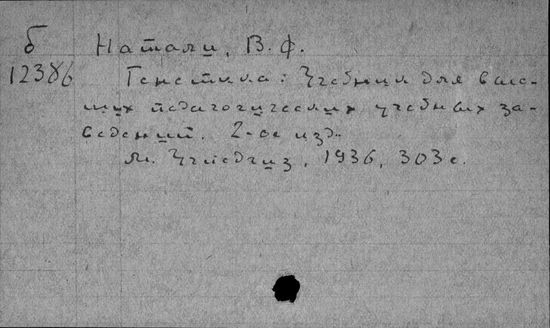 б Натали, В. Ф.
12386 Генетика: Учебник для выс-
ших педагогических учебных за-
ведений. 2-ое изд.
М. Учпедгиз, 1936, 303 с.